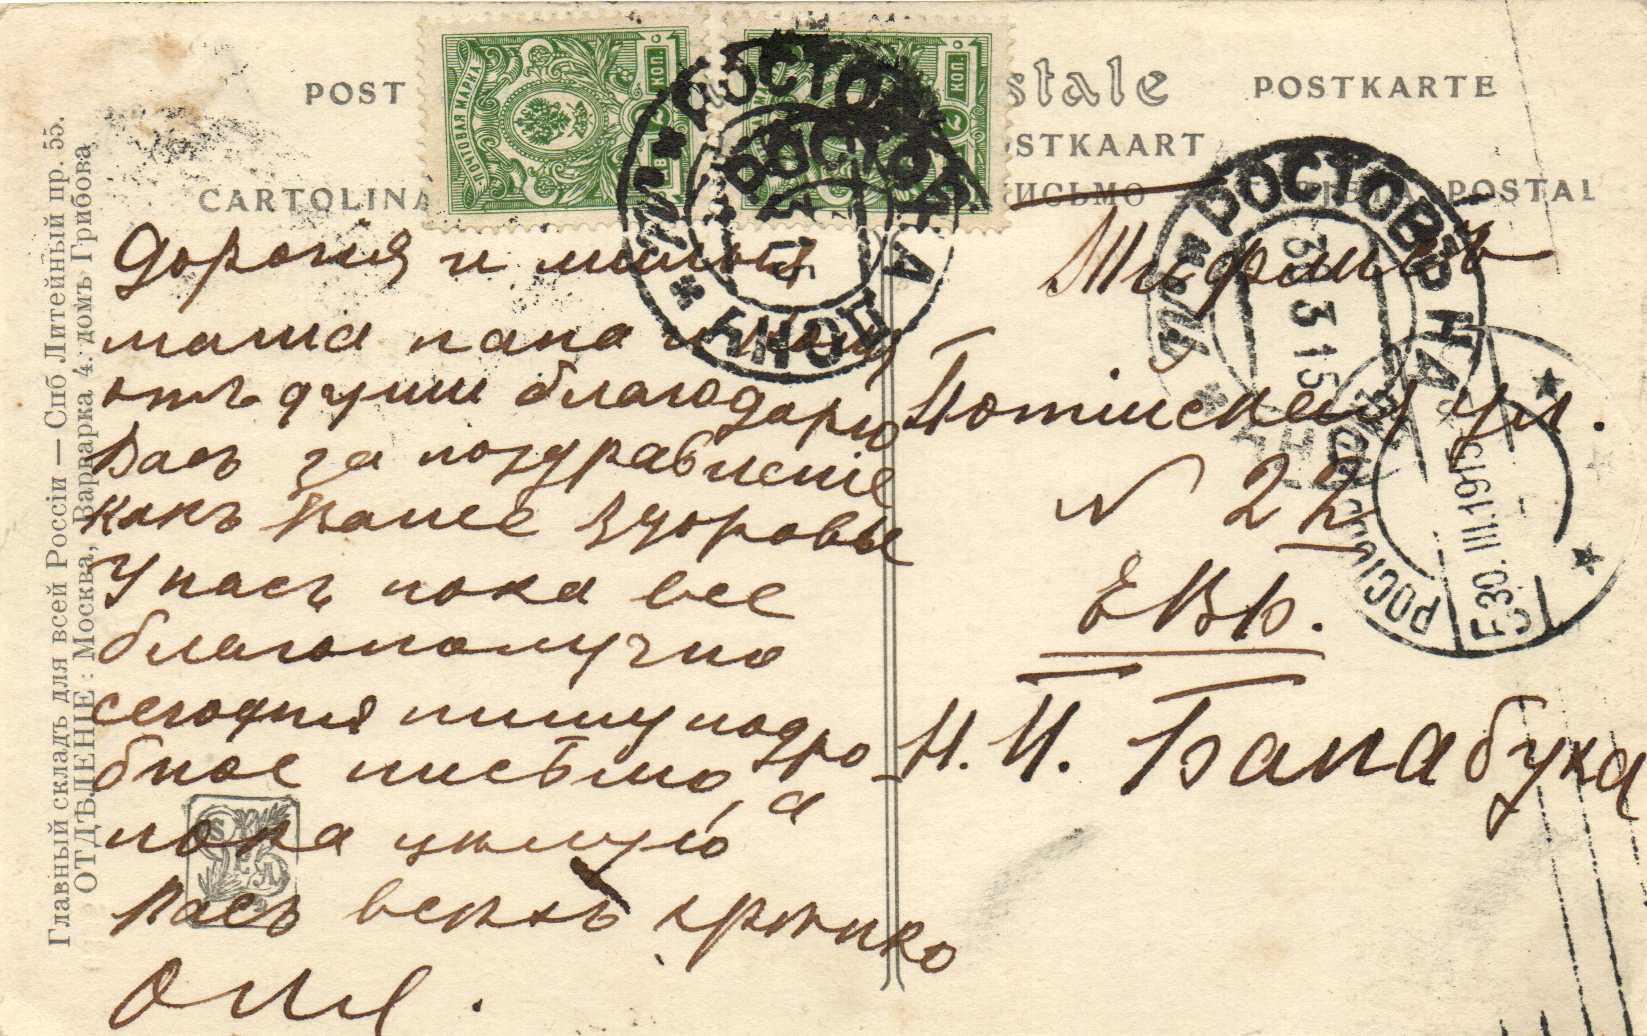 POST
stale
POSTKARTE
OSTKAART
CARTOLINA
ПИСЬМО
POSTAL
ПОЧТОВАЯ МАРКА
КОП.
2 КОП.
РОСТОВЪ НА ДОНУ
РОСТОВЪ НА
3 15
РОСТОВЪ НА
3 3 15
30.III.1915
РОСТОВЪ
Главный складъ для всей Россіи — Спб Литейный пр. 55.
ОТДѢЛЕНІЕ: Москва, Варварка 4. домъ Грибова
Дорогія и милыя
мама папа и
отъ души благодарю
Васъ за поздравленіе
какъ Ваше здоровье
У насъ пока все
благополучно
сегодня пишу подро-
бное письмо, а
пока цѣлую
Васъ всѣхъ крѣпко
Оля.
Тифлисъ
Потійская ул.
N 22
ЕВБ.
Н. И. Банабука